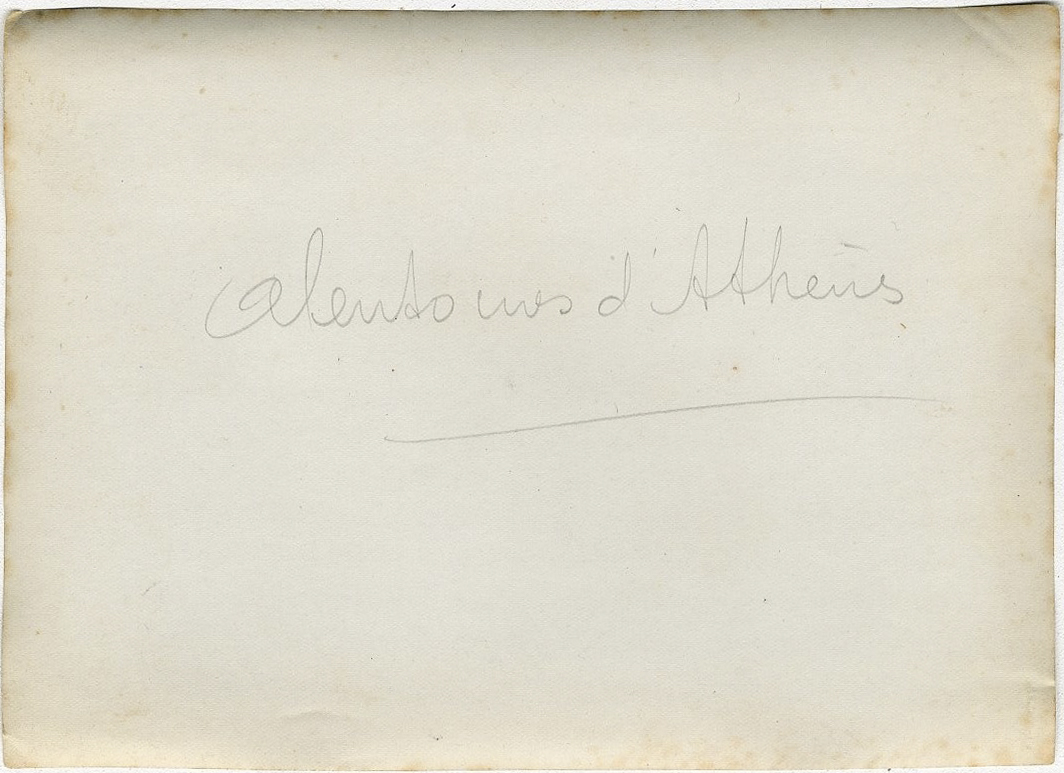 Alentours d'Athènes